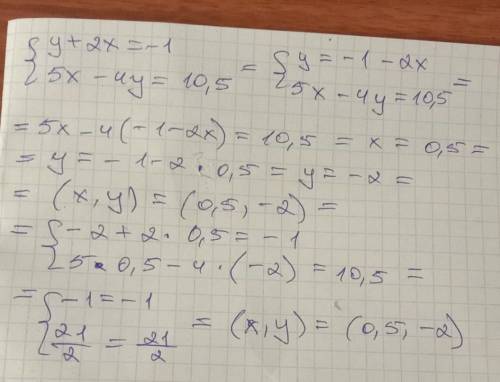 {y + 2x = -1 = {y = -1 - 2x =
{5x - 4y = 10,5 {5x - 4y = 10,5
= 5x - 4(-1-2x) = 10,5 = x = 0,5 =
= y = - 1 - 2 · 0,5 = y = -2 =
= (x, y) = (0,5, -2) =
= {-2 + 2 · 0,5 = -1
{5 · 0,5 - 4 · (-2) = 10,5 =
= {-1 = -1
{21/2 = 21/2 = (x, y) = (0,5, -2)